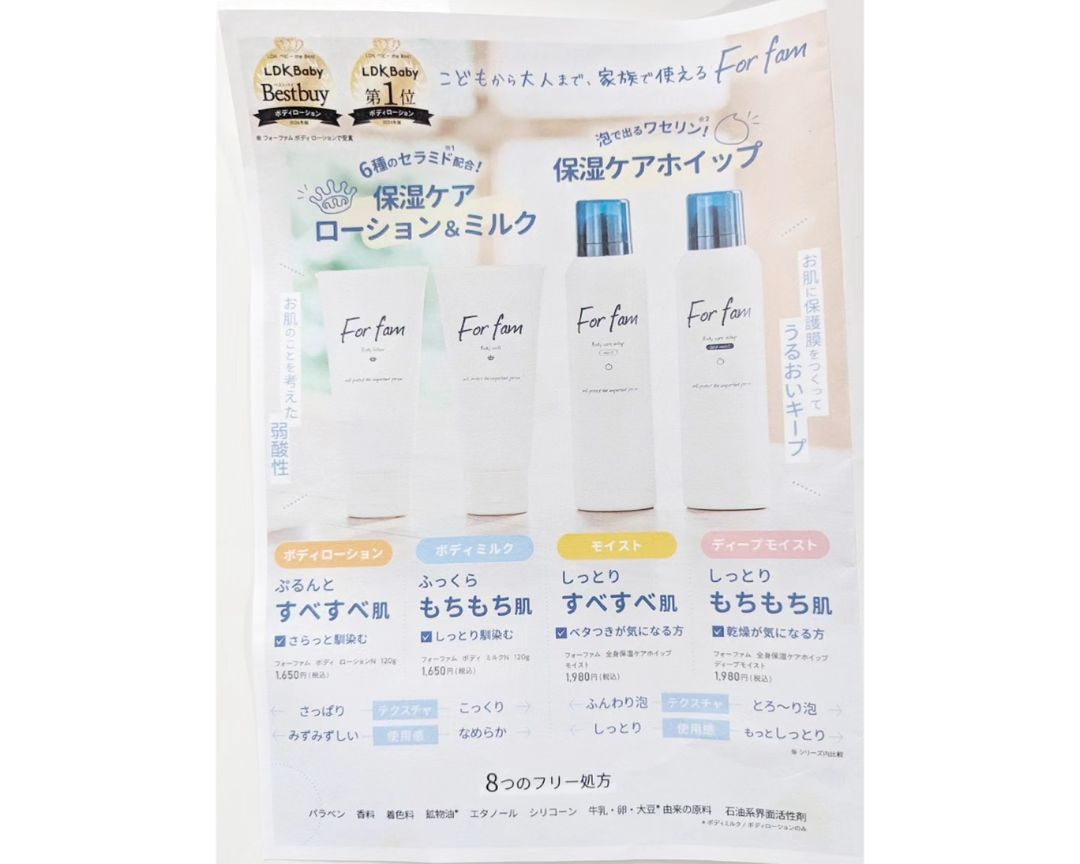 LDK Baby
ベストバイ
Bestbuy
ボディローション
2024年版
LDK Baby
第1位
ボディローション
2024年版
※フォーファム ボディローションで受賞
こどもから大人まで、家族で使える For fam
6種のセラミド※1配合!
保湿ケア
ローション&ミルク
泡で出るワセリン!※2
保湿ケアホイップ
お肌のことを考えた
弱酸性
お肌に保護膜をつくって
うるおいキープ
For fam
Body lotion
For fam
Body milk
For fam
Body care whip
For fam
Body care whip
ボディローション
ぷるんと
すべすべ肌
さらっと馴染む
フォーファム ボディ ローションN 120g
1,650円(税込)
ボディミルク
ふっくら
もちもち肌
しっとり馴染む
フォーファム ボディ ミルクN 120g
1,650円(税込)
モイスト
しっとり
すべすべ肌
ベタつきが気になる方
フォーファム 全身保湿ケアホイップ
モイスト
1,980円(税込)
ディープモイスト
しっとり
もちもち肌
乾燥が気になる方
フォーファム 全身保湿ケアホイップ
ディープモイスト
1,980円(税込)
さっぱり テクスチャ こっくり
みずみずしい 使用感 なめらか
ふんわり泡 テクスチャ とろ〜り泡
しっとり 使用感 もっとしっとり
※ シリーズ内比較
8つのフリー処方
パラベン 香料 着色料 鉱物油* エタノール シリコーン 牛乳・卵・大豆*由来の原料 石油系界面活性剤
* ボディミルク/ボディローションのみ